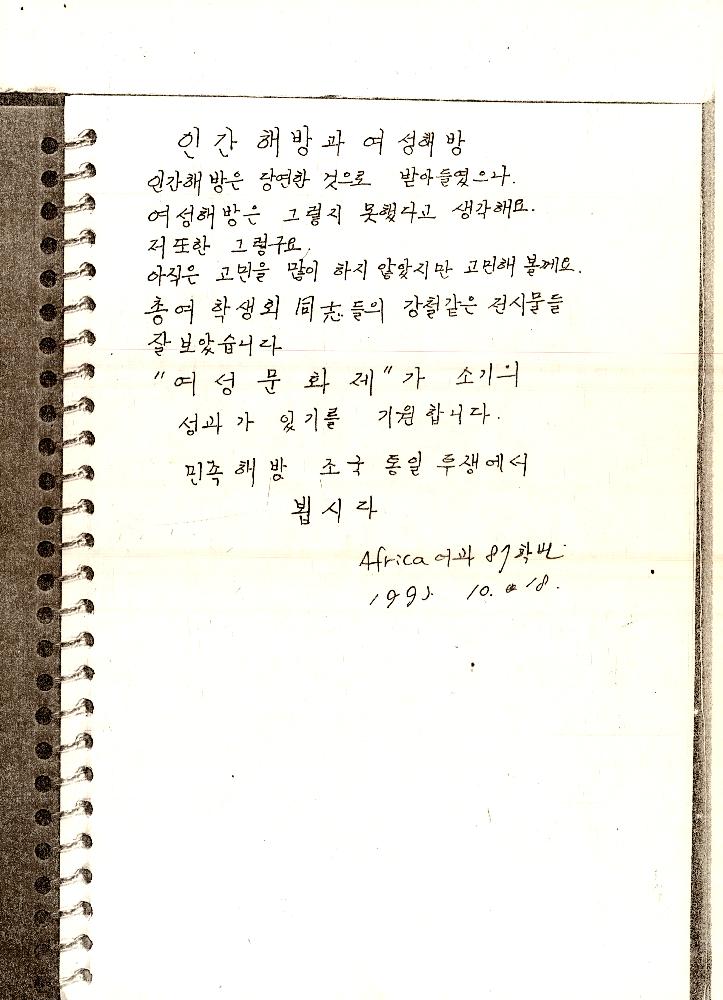 인간해방과 여성해방
인간해방은 당연한 것으로 받아들였으나.
여성해방은 그렇지 못했다고 생각해요.
저 또한 그렇구요.
아직은 고민을 많이 하지 않았지만 고민해 볼께요.
총여학생회 同志들의 강철같은 전시물들
잘 보았습니다
"여성문화제"가 소기의
성과가 있기를 기원합니다.
민족해방 조국통일 투쟁에서
뵙시다
Africa어과 87학번
10. 18.